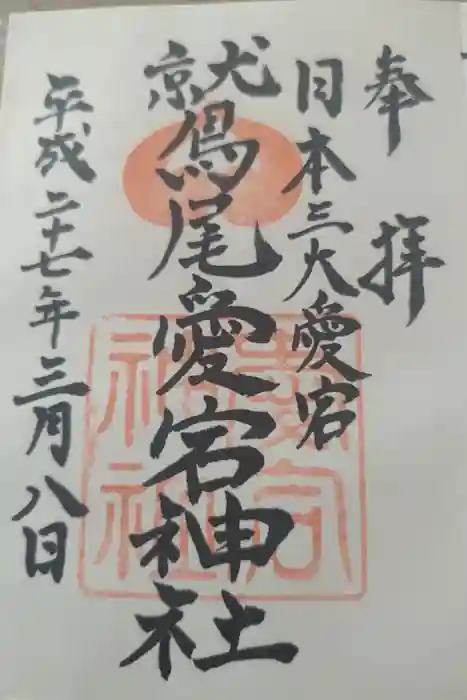 奉拝
日本三大愛宕
鷲尾愛宕神社
平成二十七年三月八日
愛宕
神社